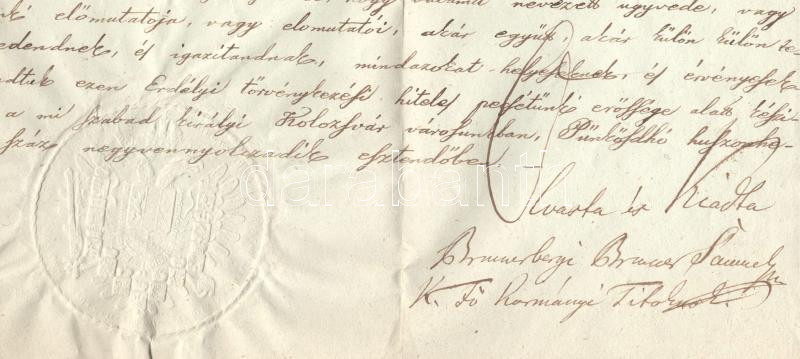 valamü nevezett ügyvéde, vagy
előmutatója, vagy előmutatói, akár együtt, akár külön külön te-
edendnek, és igazitandnak, mindazokat helyeseknek, és érvényesek
adtuk ezen Erdélyi törvénykezési hiteles pecsétünk erőssége alatt
a mi szabad királyi Kolozsvár városunkban, Pünkösdhó huszonhe-
száz negyvennyolczadik esztendőben.
darabanth
Olvasta és Kiadta
Brunnerbergi Sámuel
K. Fő Kormányi Titoknok.